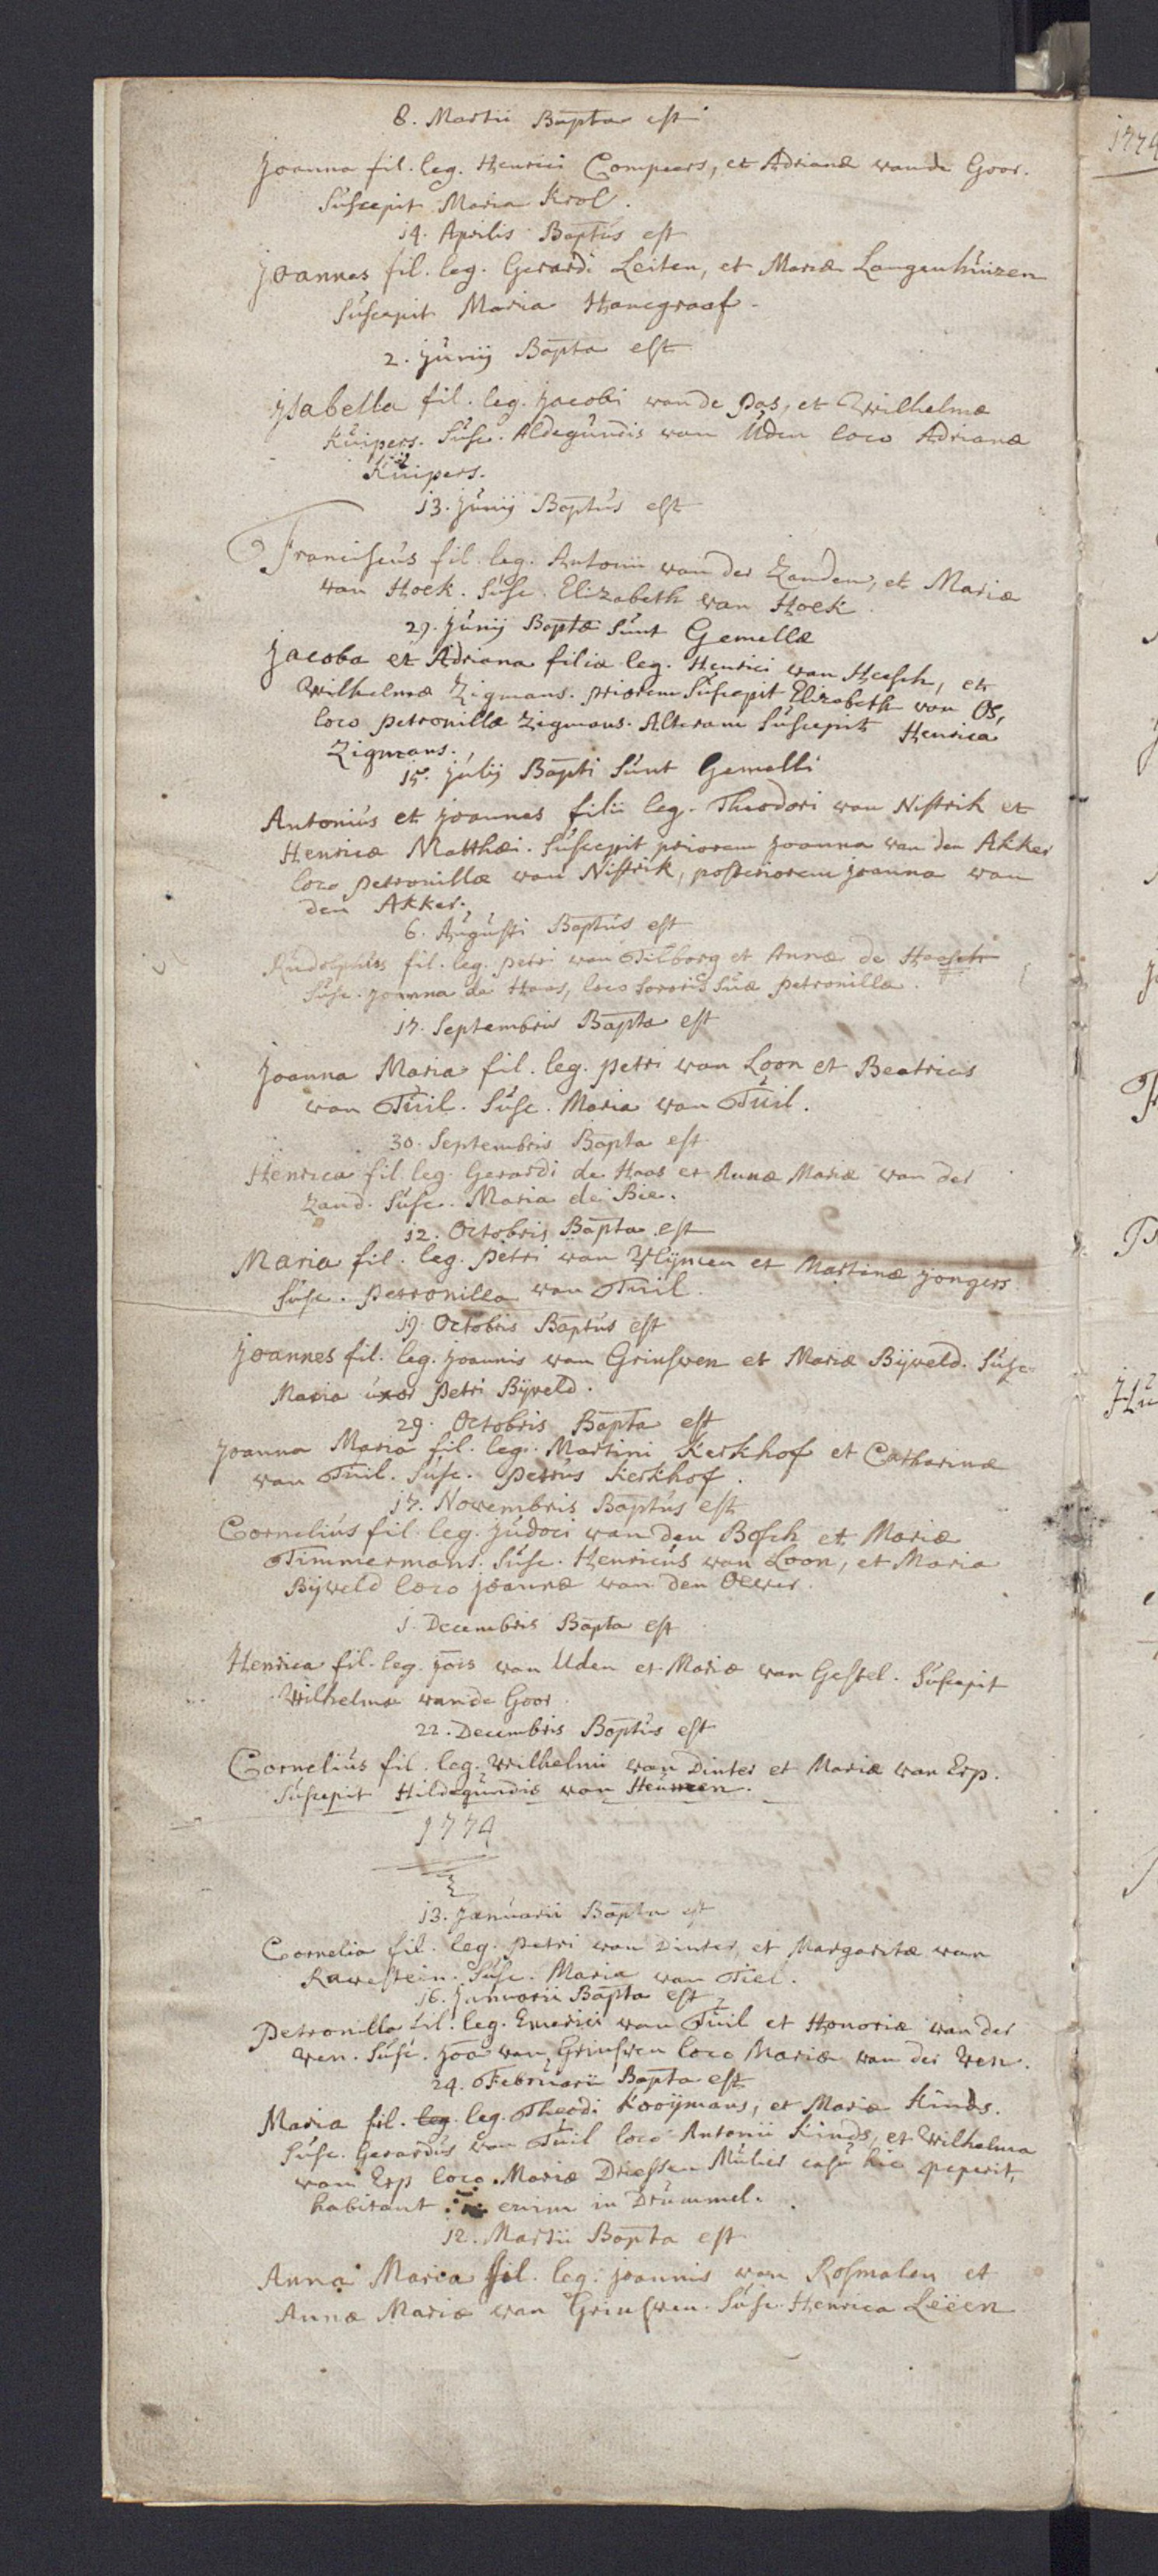 8. Martii Bapta est
Joanna fil. leg. Henrici Compeers, et Adrianæ vande Goor.
Suscepit Maria Krol.
14. Aprilis Baptus est
Joannes fil. leg. Gerardi Leiten, et Mariæ Langenhuizen
Suscepit Maria Hanegraaf.
2. Junij Bapta est
Isabella fil. leg. Jacobi vande Pas, et Wilhelmæ
Kuipers. Susc. Aldegundis van Uden loco Adrianæ
Kuipers.
13. Junij Baptus est
Franciscus fil. leg. Antonii van der Zanden, et Mariæ
van Hoek. Susc. Elizabeth van Hoek.
29. Junij Baptæ sunt Gemellæ
Jacoba et Adriana filiæ leg. Henrici van Heesch, et
Wilhelmæ Zigmans. priorem Suscepit Elizabeth van Os,
loco petronillæ Zigmans. Alteram Suscepit Henrica
Zigmans.
15. Julij Bapti Sunt Gemelli
Antonius et Joannes filii leg. Theodori van Nistrik et
Henricæ Matthæi. Suscepit priorem Joanna van den Akker
loco petronillæ van Nistrik, posteriorem Joanna van
den Akker.
6. Augusti Baptus est
Rudolphus fil. leg. petri van Tilborg et Annæ de
Susc. Joanna de Haas, loco Sororis Suæ petronillæ.
17. Septembris Bapta est
Joanna Maria fil. leg. petri van Loon et Beatricis
van Tuil. Susc. Maria van Tuil.
30. Septembris Bapta est
Henrica fil. leg. Gerardi de Haas et Annæ Mariæ van der
Zand. Susc. Maria de Bie.
12. Octobris Bapta est
Maria fil. leg. petri van Vlijmen et Martinæ Jongers
Susc. petronilla van Tuil.
19. Octobris Baptus est
Joannes fil. leg. Joannis van Grinsven et Mariæ Bijveld. Susc.
Maria uxor petri Bijveld.
29. Octobris Bapta est
Joanna Maria fil. leg. Martini Kerkhof et Catharinæ
van Tuil. Susc. petrus Kerkhof.
17. Novembris Baptus est
Cornelius fil. leg. Judoci van den Bosch et Mariæ
Timmermans. Susc. Henricus van Loon, et Maria
Bijveld loco Joannæ van den Oever.
1. Decembris Bapta est
Henrica fil. leg. Jois van Uden et Mariæ van Gestel. Suscepit
Wilhelma vande Goor.
22. Decembris Baptus est
Cornelius fil. leg. Wilhelmi van Dinter et Mariæ van Erp.
Suscepit Hildegundis van Heumen.
1774
13. Januarii Bapta est
Cornelia fil. leg. petri van Dinter, et Margaritæ van
Ravestein. Susc. Maria van Tiel.
16. Januarii Bapta est
Petronilla fil. leg. Emerici van Tuil et Honoriæ van der
Ven. Susc. Joa van Grinsven loco Mariæ van der Ven.
24. Februarii Bapta est
Maria fil. leg. leg. Theodi Kooijmans, et Mariæ Kinds.
Susc. Gerardus van Tuil loco Antonii Kinds, et Wilhelma
van Erp loco Mariæ Driessen Mulier casu hic peperit,
habitant enim in Drummel.
12. Martii Bapta est
Anna Maria fil. leg. Joannis van Rosmalen et
Annæ Mariæ van Grinsven. Susc. Henrica Leeen
1774